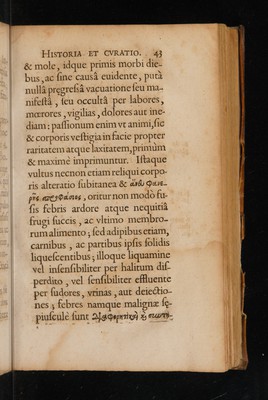 HISTORIA ET CVRATIO. 43
& mole, idque primis morbi die-
bus, ac sine causâ euidente, putà
nullâ prægressâ vacuatione seu ma-
nifestâ, seu occultâ per labores,
mœrores, vigilias, dolores aut ine-
diam: passionum enim vt animi, sic
& corporis vestigia in facie propter
raritatem atque laxitatem, primùm
& maximè imprimuntur. Istaque
vultus necnon etiam reliqui corpo-
ris alteratio subitanea & ἄνευ φανε-
ρῆς προφάσεως, oritur non modò fu-
sis febris ardore atque nequitiâ
frugi succis, ac vltimo membro-
rum alimento; sed adipibus etiam,
carnibus, ac partibus ipsis solidis
liquescentibus; illoque liquamine
vel insensibiliter per halitum dis-
perdito, vel sensibiliter effluente
per sudores, vrinas, aut deiectio-
nes; febres namque malignæ sæ-
piusculè sunt